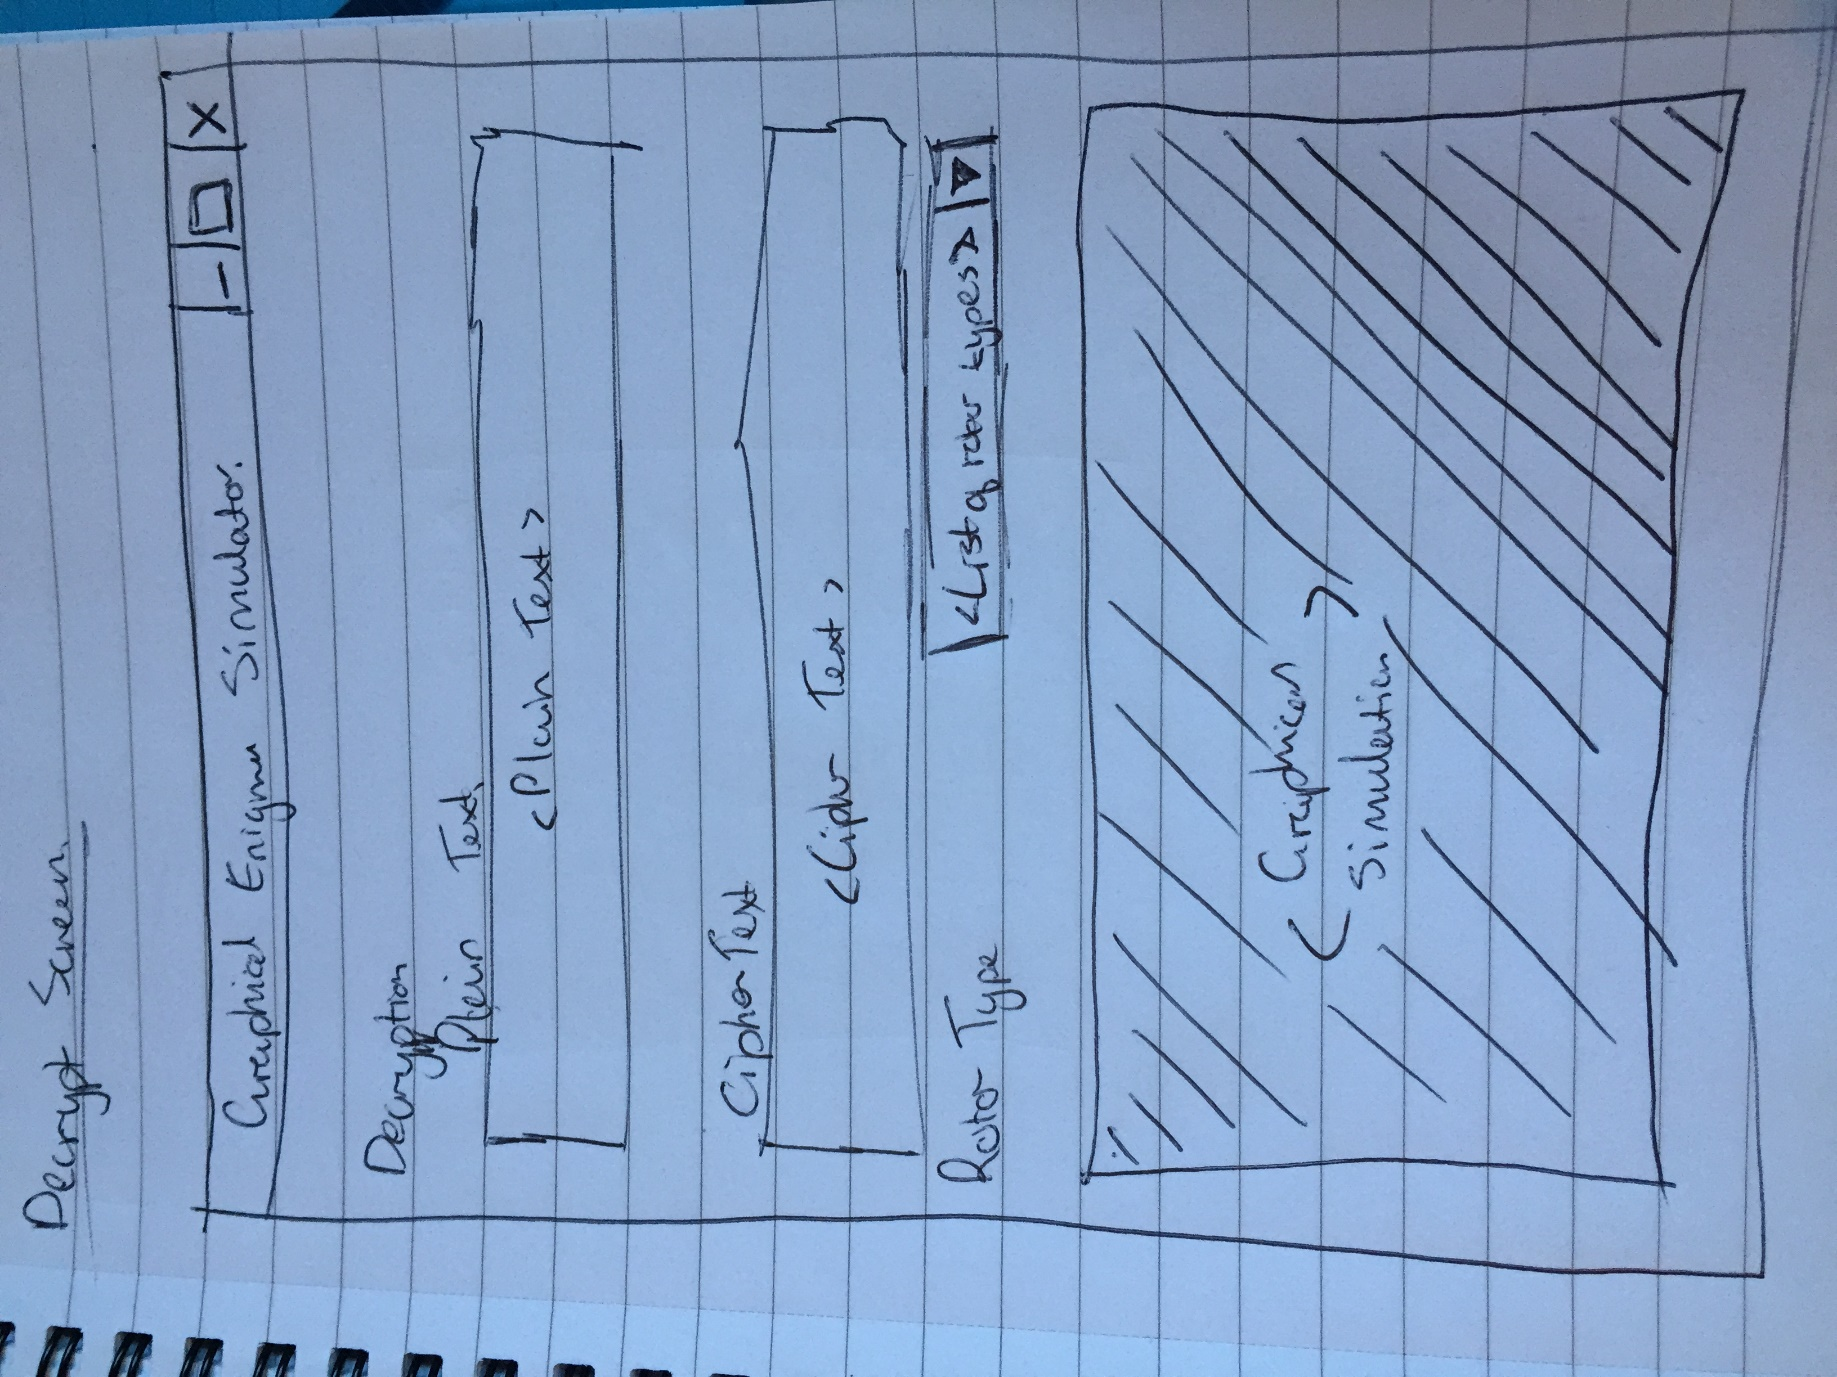 Decrypt Screen.
Graphical Enigma Simulator. - □ X
Decryption
Plain Text
<Plain Text>
Cipher Text
<Cipher Text>
Rotor Type <List of rotor types>
<Graphical
Simulation>